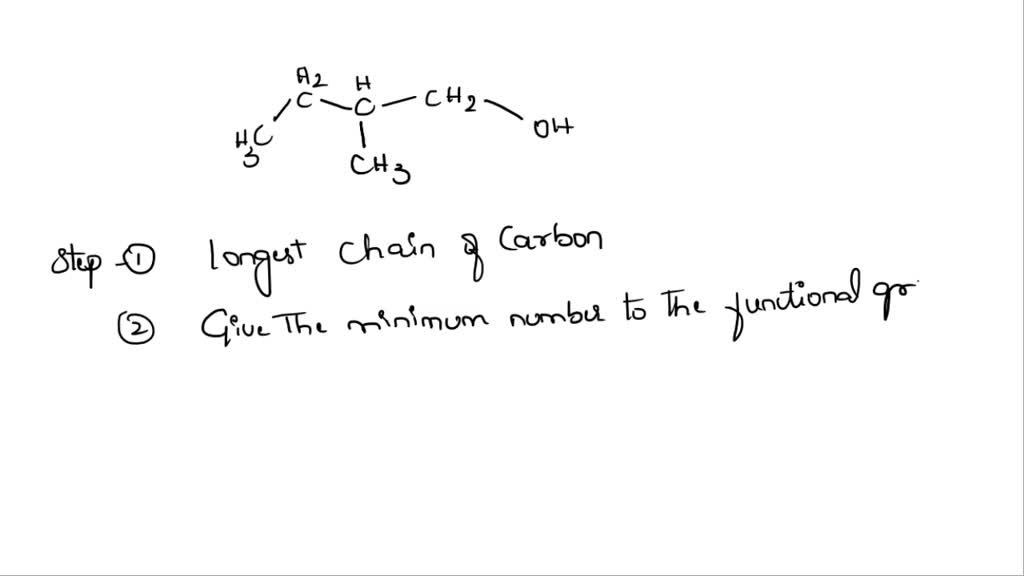 H2 H
C C CH2
H3C OH
CH3
Step -① longest chain of Carbon
② Give The minimum number to the functional gr